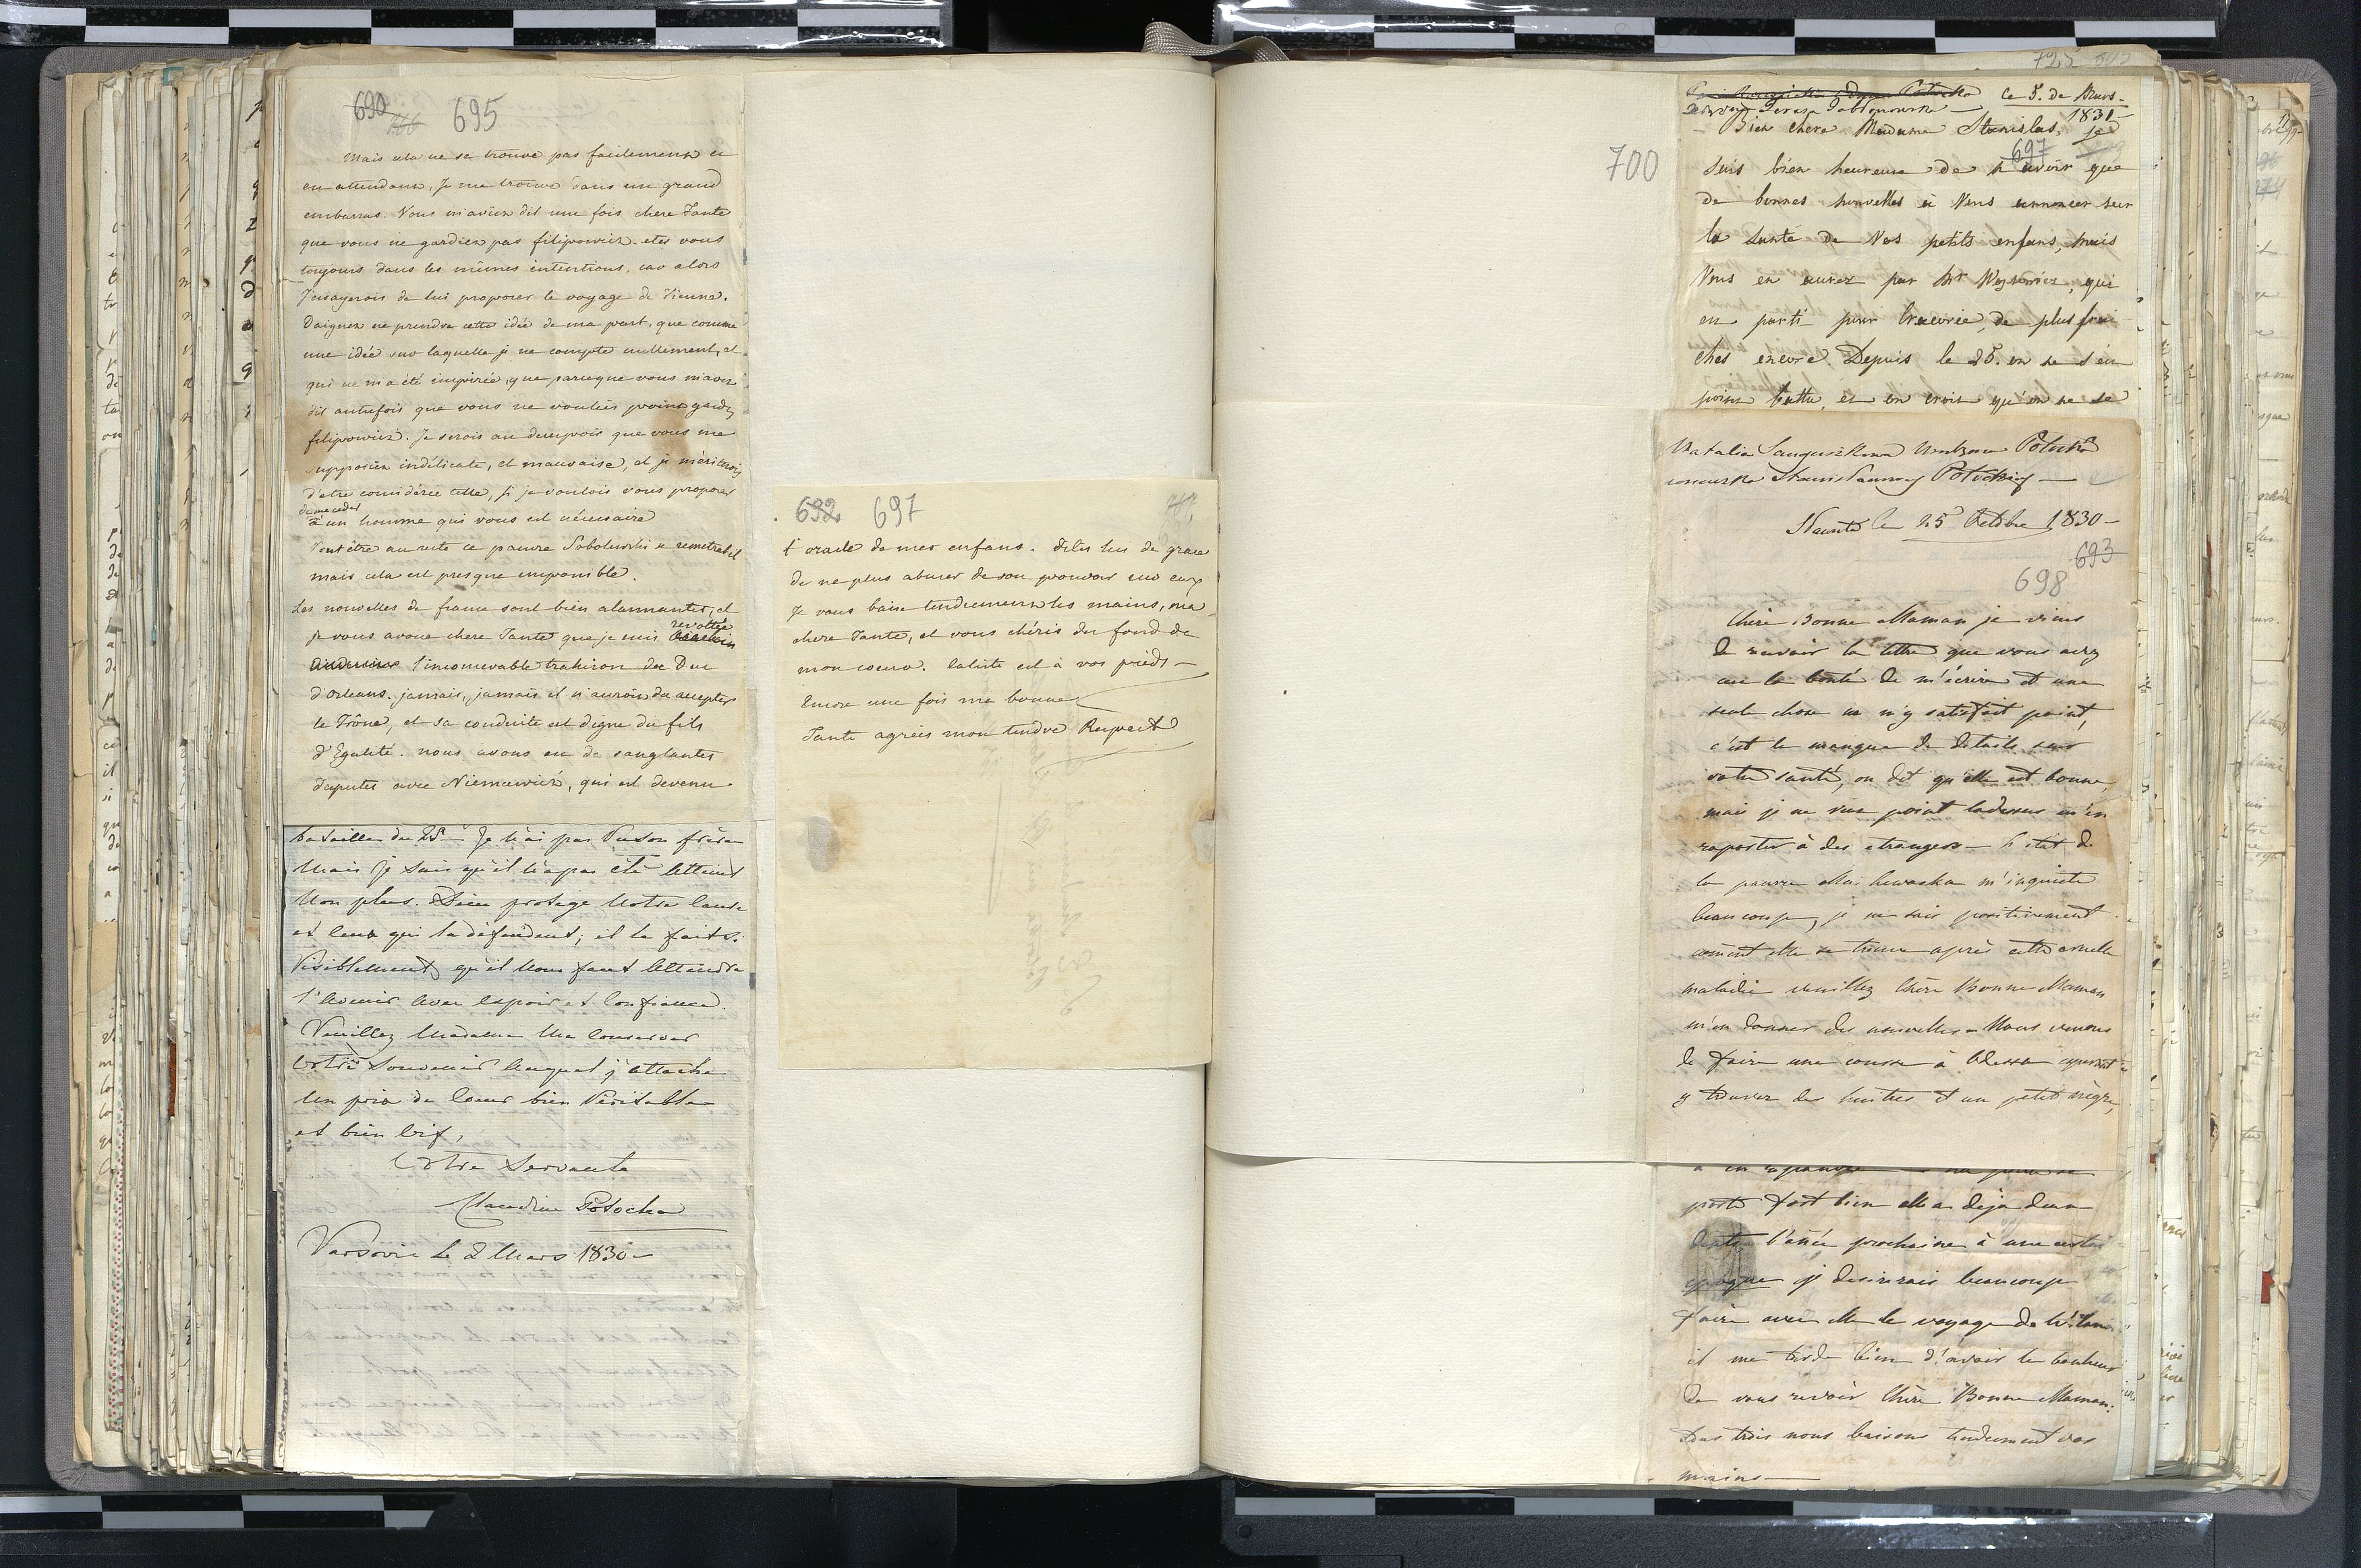 690 695
Mais cela ne se trouve pas facilement et
en attendant, Je me trouve dans un grand
embarras. Vous m'aviez dit une fois chere Tante
que vous ne gardiez pas filipowicz. etes vous
toujours dans les mêmes intentions, car alors
J'essayerois de lui proposer le voyage de Vienne.
Daignez ne prendre cette idée de ma part, que comme
une idée sur laquelle je ne compte nullement, et
qui ne m'a été inspirée, que parceque vous m'avez
dit autrefois que vous ne vouliez point garder
filipowicz. Je serois au desespoir que vous me
supposiez indélicate, et mauvaise, et je mériterois
d'etre considérée telle, si je voulois vous proposer
de me ceder
un homme qui vous est nécessaire
Peut être au reste ce pauvre Sobolewski se remettrat il
mais cela est presque impossible.
Les nouvelles de france sont bien alarmantes, et
je vous avoue chere Tante que je suis revoltée
l'inconcevable trahison du Duc
d'Orleans. jamais, jamais il n'auroit du accepter
le Trône, et sa conduite est digne du fils
d'Egalité. nous avons eu de sanglantes
disputes avec Niemcewicz, qui est devenu
bataille du 25 – Je n'ai pas vu son frère
Mais je sais qu'il n'a pas été atteint
Non plus. Dieu protège Notre cause
et ceux qui la défendent; il le fait si
Visiblement qu'il Nous faut attendre
l'avenir avec espoir et confiance.
Veuillez Madame Me conserver
Votre Souvenir auquel j'attache
un prix de coeur bien Véritable
et bien vif,
Votre Servante
Claudine Potocka
Varsovie le 2 Mars 1830–
692 697
l'oracle de mes enfans. dites lui de grace
de ne plus abuser de son pouvoir sur eux
Je vous baise tendrement les mains, ma
chere Tante, et vous chéris du fond de
mon coeur. la liste est à vos pieds –
Encore une fois ma bonne
Tante agréez mon tendre Respect
700
725
Ce 5. de Mars.
1831–
Bien chere Madame Stanislas, je
697
suis bien heureuse de n'avoir que
de bonnes nouvelles à Vous annoncer sur
la santé de Vos petits enfans, mais
Vous en aurez par Mr
en parti pour Cracovie, de plus frai
ches encore. Depuis le 25. on ne s'en
point battu, et on croit qu'on ne se
Natalia Sanguszkowa Potocka
Stanisławowej Potockiej —
le 25 Octobre 1830–
693
698
Chère Bonne Maman je viens
de recevoir la lettre que vous avez
eue la bonté de m'écrire et une
seule chose ne m'y satisfait point,
c'est le manque de details sur
votre santé, on dit qu'elle est bonne,
mais je ne veux point la dessus m'en
raporter à des etrangers – l'état de
la pauvre m'inquiete
beaucoup, je ne sais positivement
comment elle se trouve après cette cruelle
maladie veuillez Chère Bonne Maman
m'en donner des nouvelles – Nous venons
de faire une course à Odessa
y trouver des huitres et un petit nègre,
porte fort bien elle a déjà deux
dents l'année prochaine à une certaine
epoque je desirerais beaucoup
faire avec elle le voyage de
il me tarde bien d'avoir le bonheur
de vous revoir Chère Bonne Maman.
Tous trois nous baisons tendrement vos
mains —